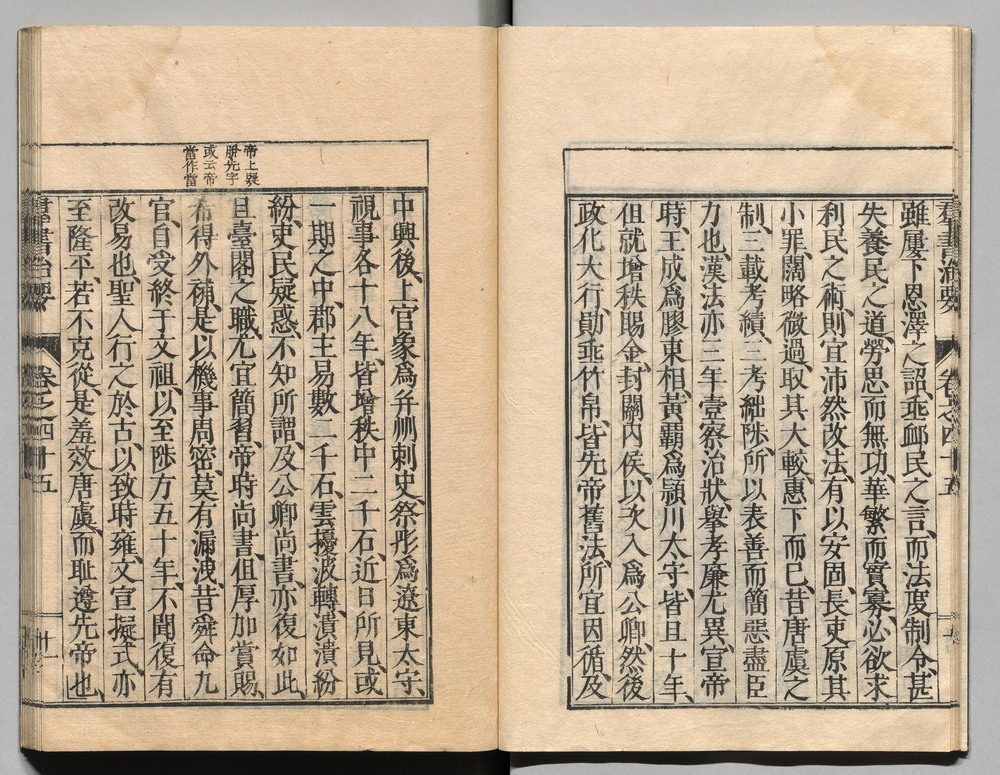 雖屢下恩澤之詔、乖卹民之言、而法度制令、甚
失養民之道、勞思而無功、華繁而實寡、必欲求
利民之術、則宜沛然改法、有以安固、長吏原其
小罪、闊略微過、取其大較、惠下而已、昔唐虞之
制、三載考績、三考絀陟、所以表善而簡惡盡臣
力也、漢法亦三年壹察治狀、舉孝廉尤異、宣帝
時、王成爲膠東相、黃霸爲潁川太守、皆且十年、
但就增秩賜金、封關內侯、以次入爲公卿、然後
政化大行、勛乖竹帛、皆先帝舊法、所宜因循、及
中興後、上官象爲并州刺史、祭彤爲遼東太守、
視事各十八年、皆增秩中二千石、近日所見、或
一期之中、郡主易數二千石、雲擾波轉、潰潰紛
紛、吏民疑惑、不知所謂、及公卿尚書、亦復如此、
且臺閣之職、尤宜簡習、帝時尚書、但厚加賞賜、
希得外補、是以機事周密、莫有漏洩、昔舜命九
官、自受終于文祖、以至陟方五十年、不聞復有
改易也、聖人行之於古、以致時雍、文宣擬式、亦
至隆平、若不克從、是羞效唐虞、而耻遵先帝也、
帝上疑
脫先字
或云帝
當作當
群書治要
卷之四十五
群書治要
卷之四十五
廿一